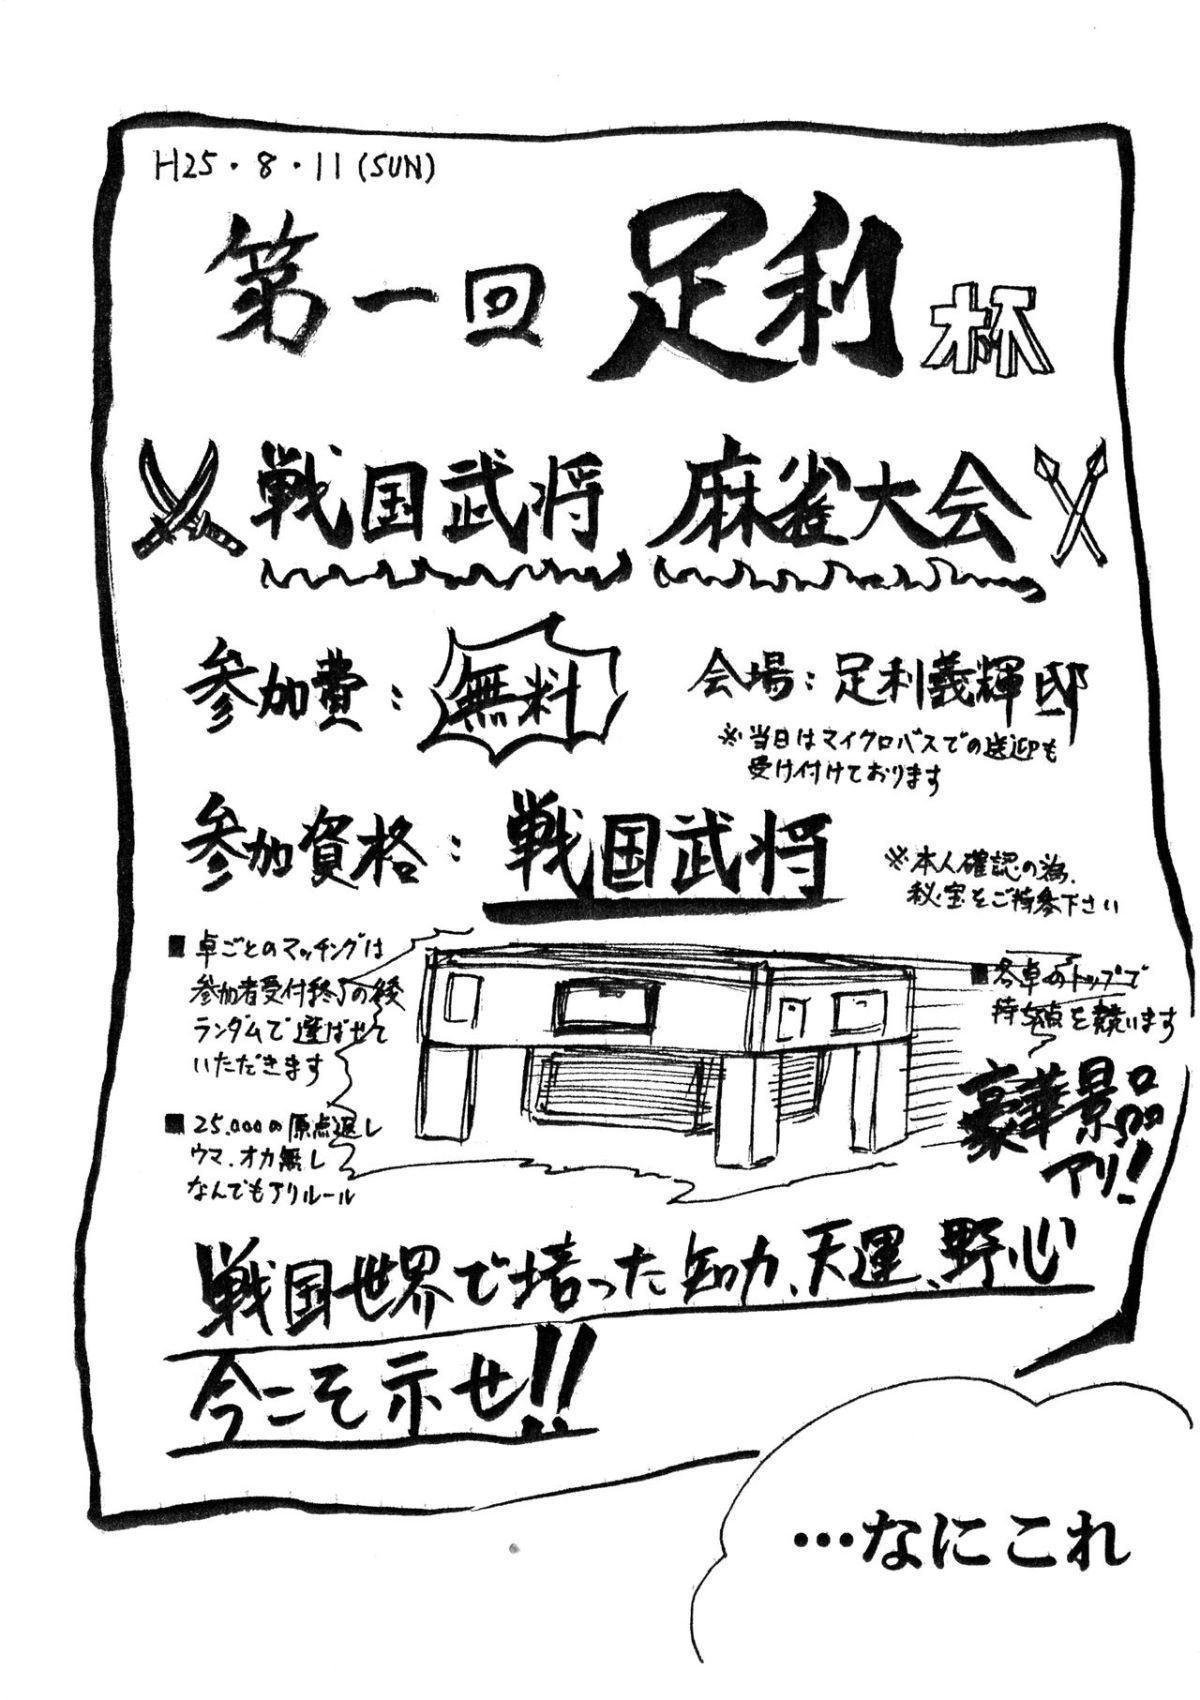 H25・8・11(SUN)
第一回 足利杯
戦国武将 麻雀大会
参加費:無料
会場:足利義輝邸
※当日はマイクロバスでの送迎も
受け付けております
参加資格:戦国武将
※本人確認の為、
秘宝をご持参下さい
■卓ごとのマッチングは
参加者受付終了の後
ランダムで選ばせて
いただきます
■25,000の原点返し
ウマ、オカ無し
なんでもアリルール
■各卓のトップで
持ち点を競います
豪華景品
アリ!
戦国世界で培った知力、天運、野心
今こそ示せ!!
…なにこれ